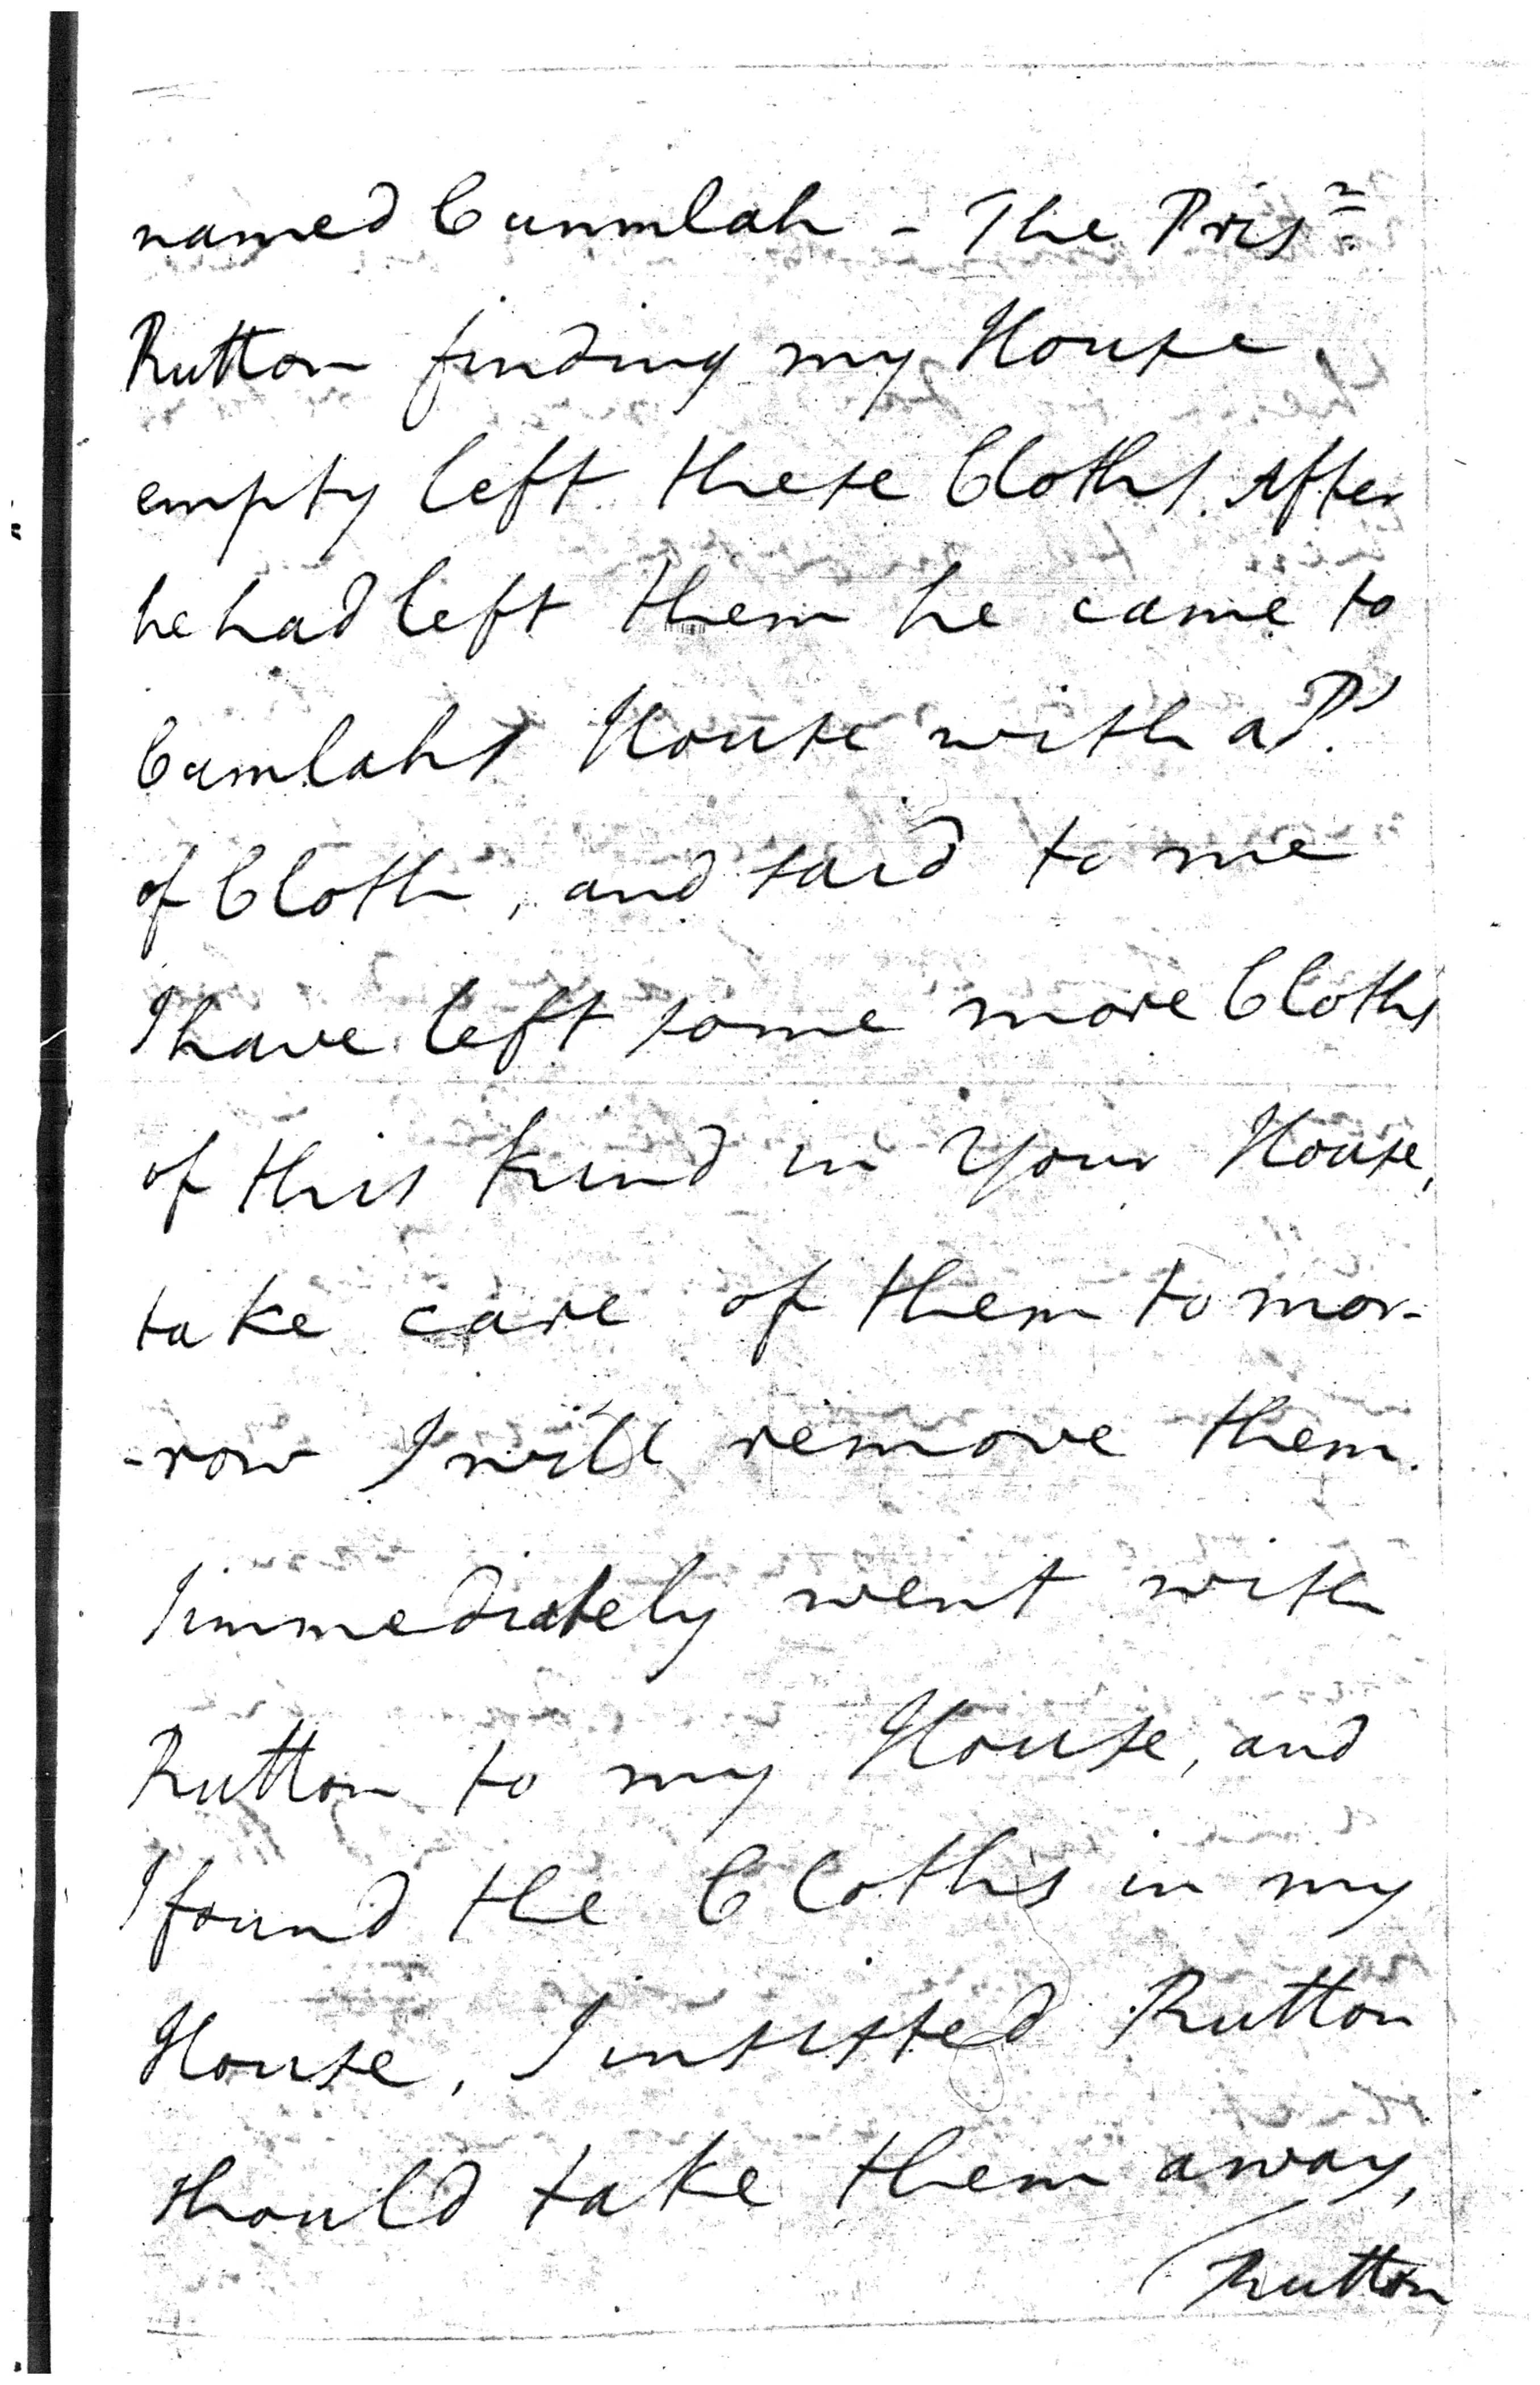 named Cummlah - The Prisr
Rutton finding my House
empty left these Cloths. After
he had left them he came to
Camlahs House with a Ps
of Cloth, and said to me
I have left some more Cloths
of this kind in Your House,
take care of them to mor-
-row I will remove them.
I immediately went with
Rutton to my House, and
I found the Cloths in my
House, I insisted Rutton
should take them away,
Rutton